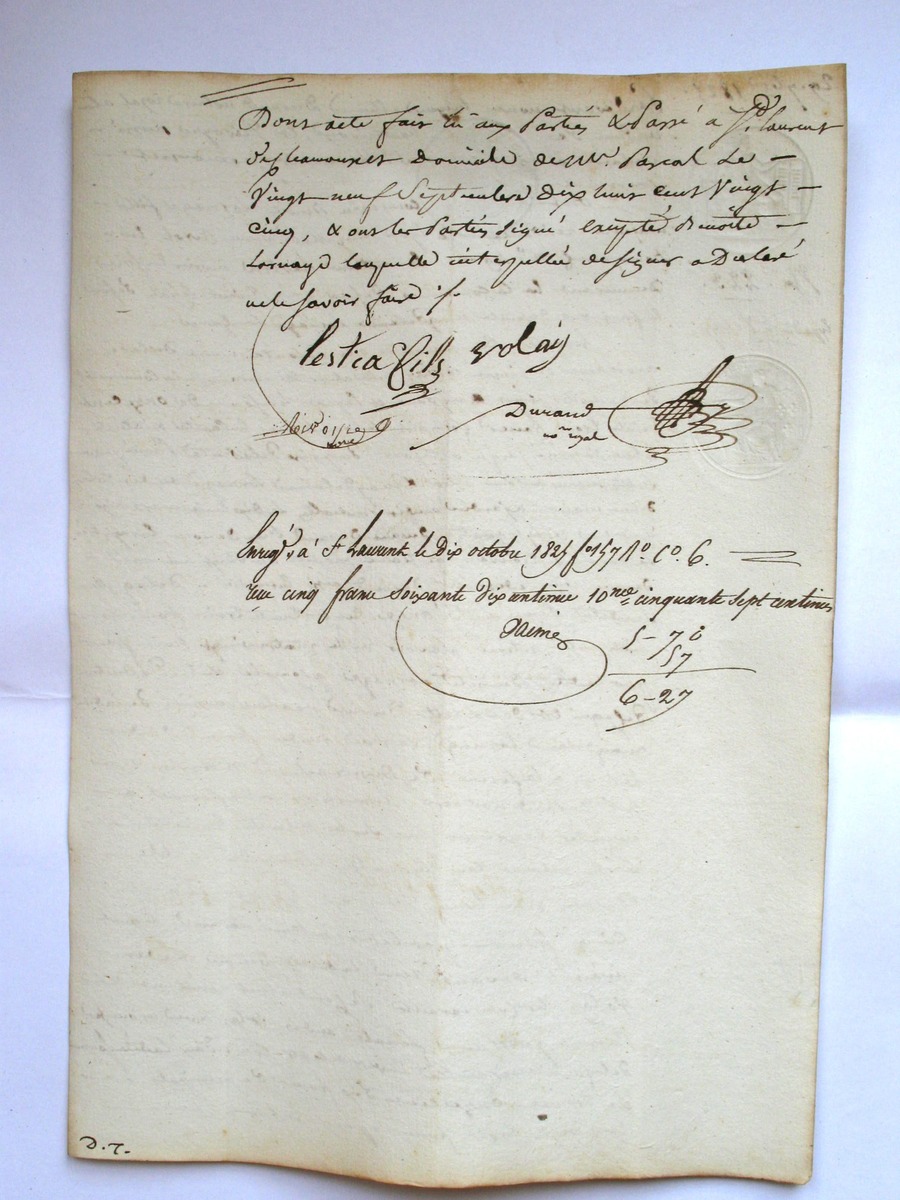 Dont acte fait lu aux Parties & Passé à St. Laurent
de Chamousset domicile de Mr. Pascal Le
Vingt neuf Septembre Dix huit cent Vingt
cinq, & ont les Parties signé excepté Benoite
laquelle interpellée de signer a Déclaré
ne le savoir faire ./.
fils Volay
Durand
nore royal
Enregé. à St Laurent le dix octobre 1825 fo 157 Ro. Co. 6.
reçu cinq franc soixante dix centime 10me. cinquante sept centimes
5-70
57
6-27
D.T.